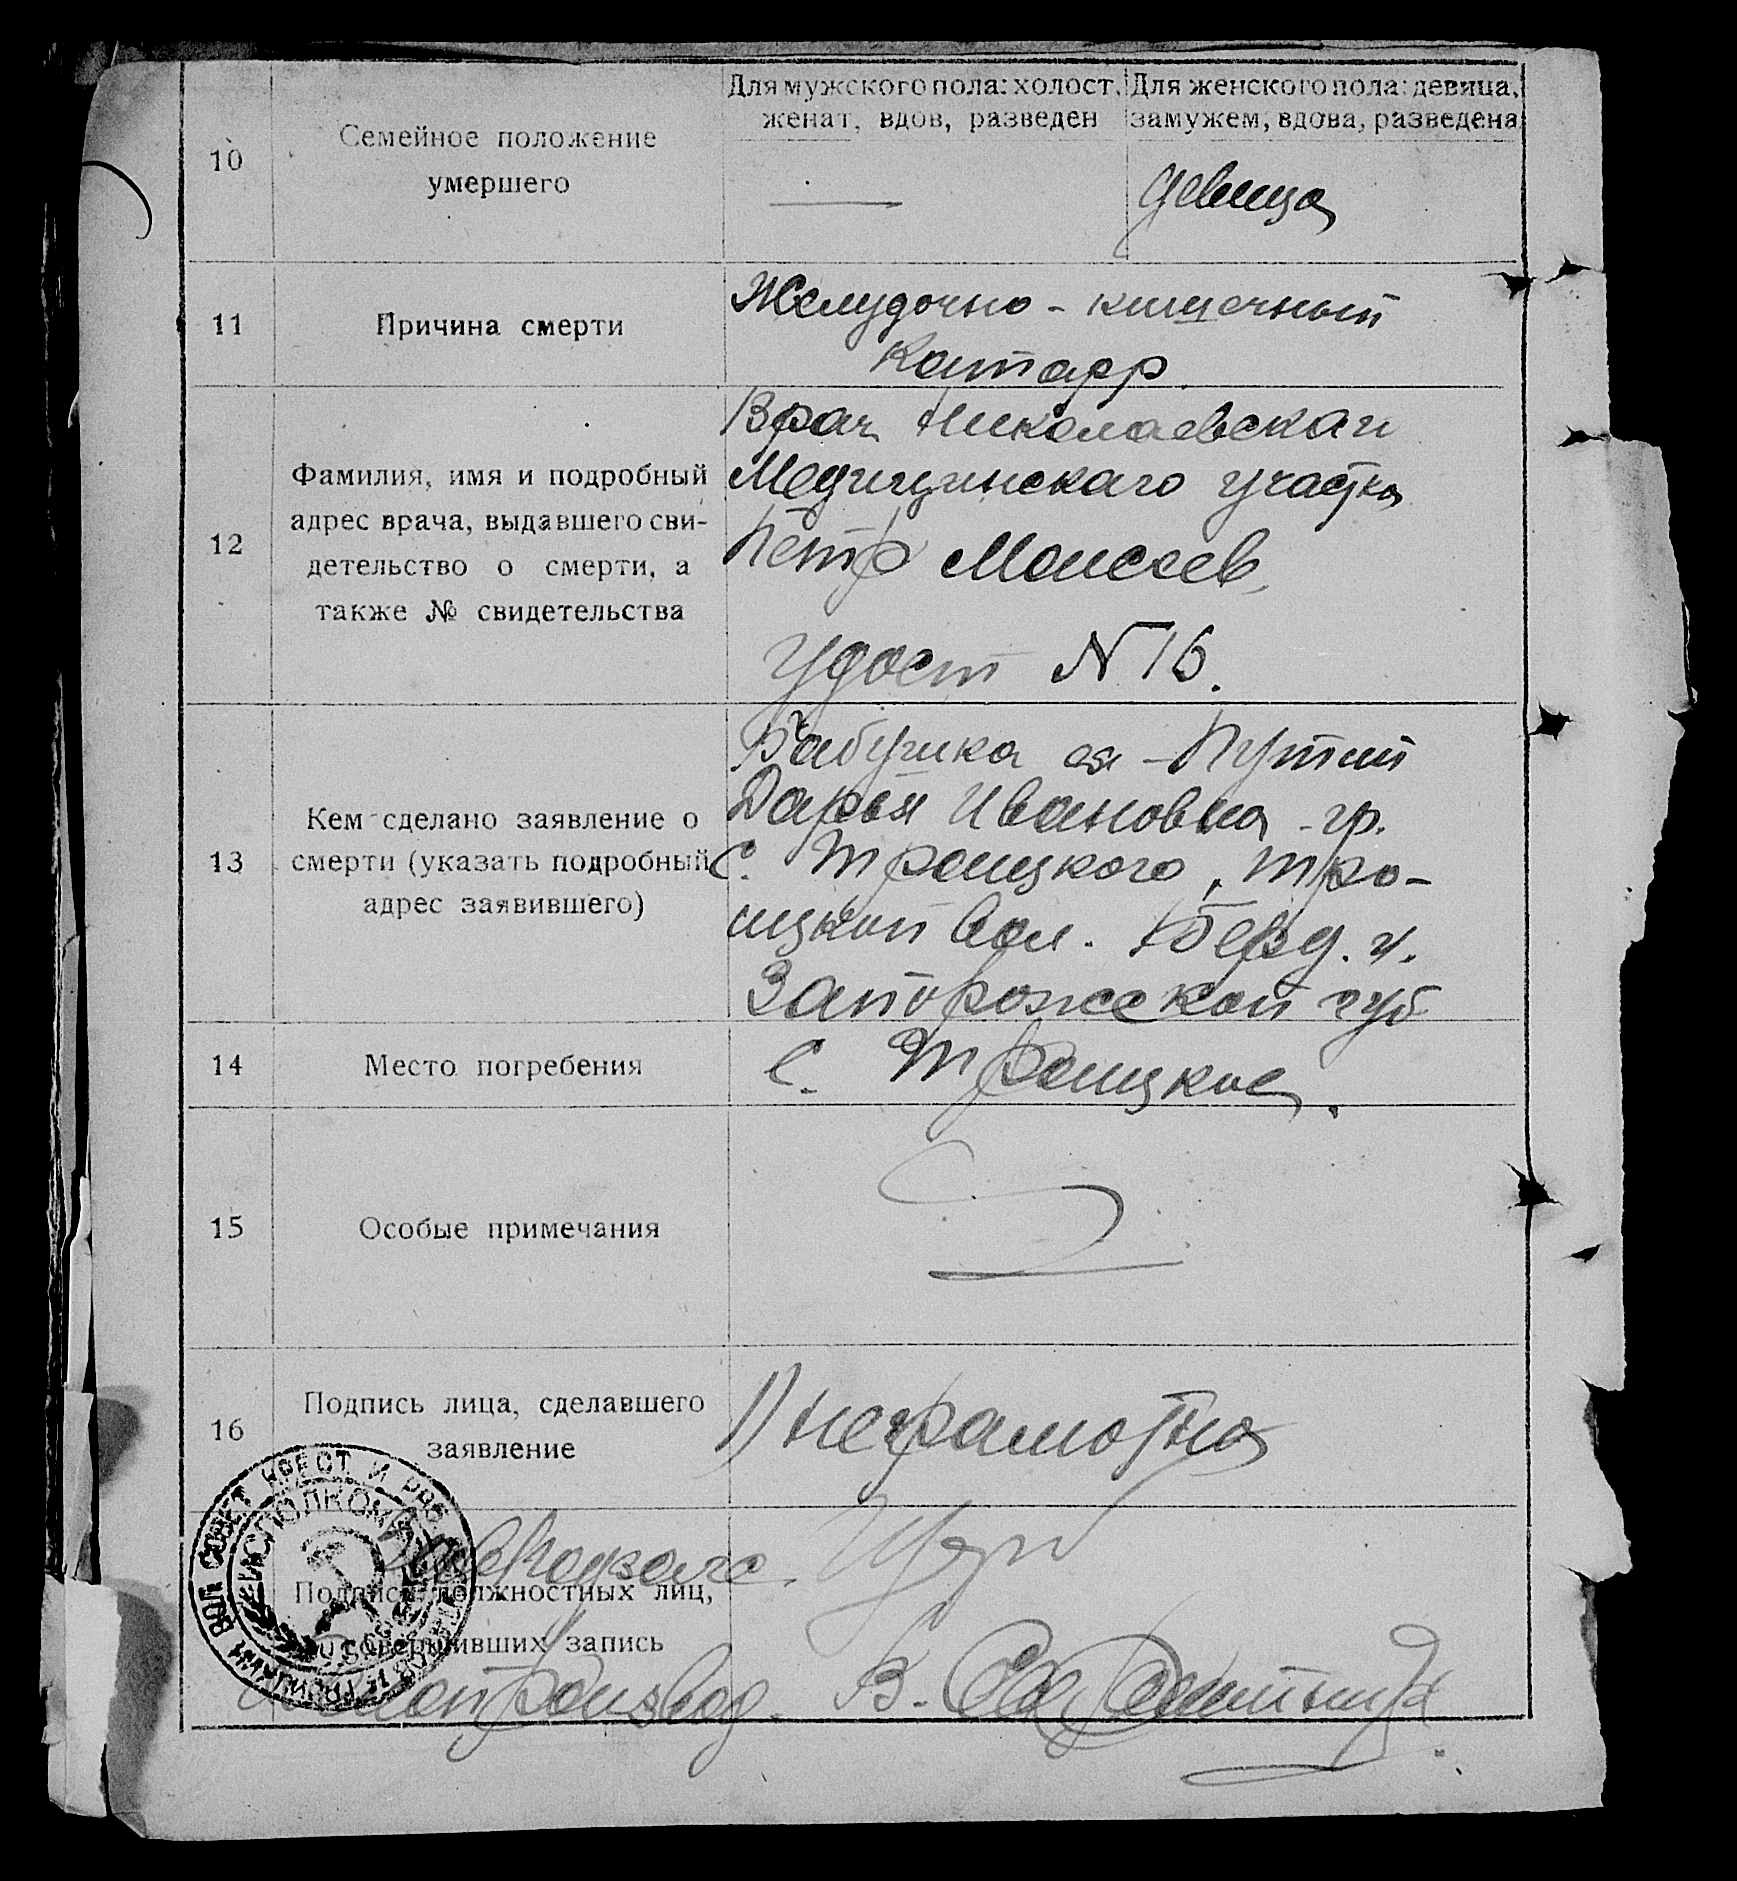 Для мужского пола: холост, женат, вдов, разведен
Для женского пола: девица, замужем, вдова, разведена
10
Семейное положение
умершего
—
девица
11
Причина смерти
Желудочно - кишечный
Катарр
12
Фамилия, имя и подробный
адрес врача, выдавшего сви-
детельство о смерти, а
также № свидетельства
Врач Николаевскаго
Медицинскаго участка
Петр Моисеев
удост N 16.
13
Кем сделано заявление о
смерти (указать подробный
адрес заявившего)
Бабушка ея -
Дарья Ивановна - гр.
с. Троицкого, Тро-
ицкой вол. Берд. у.
Запорожской губ
14
Место погребения
с. Троицкое.
15
Особые примечания
16
Подпись лица, сделавшего
заявление
1) неграмотна
Подписи должностных лиц,
совершивших запись
Делопроизвод. В.
ИСПОЛКОМ